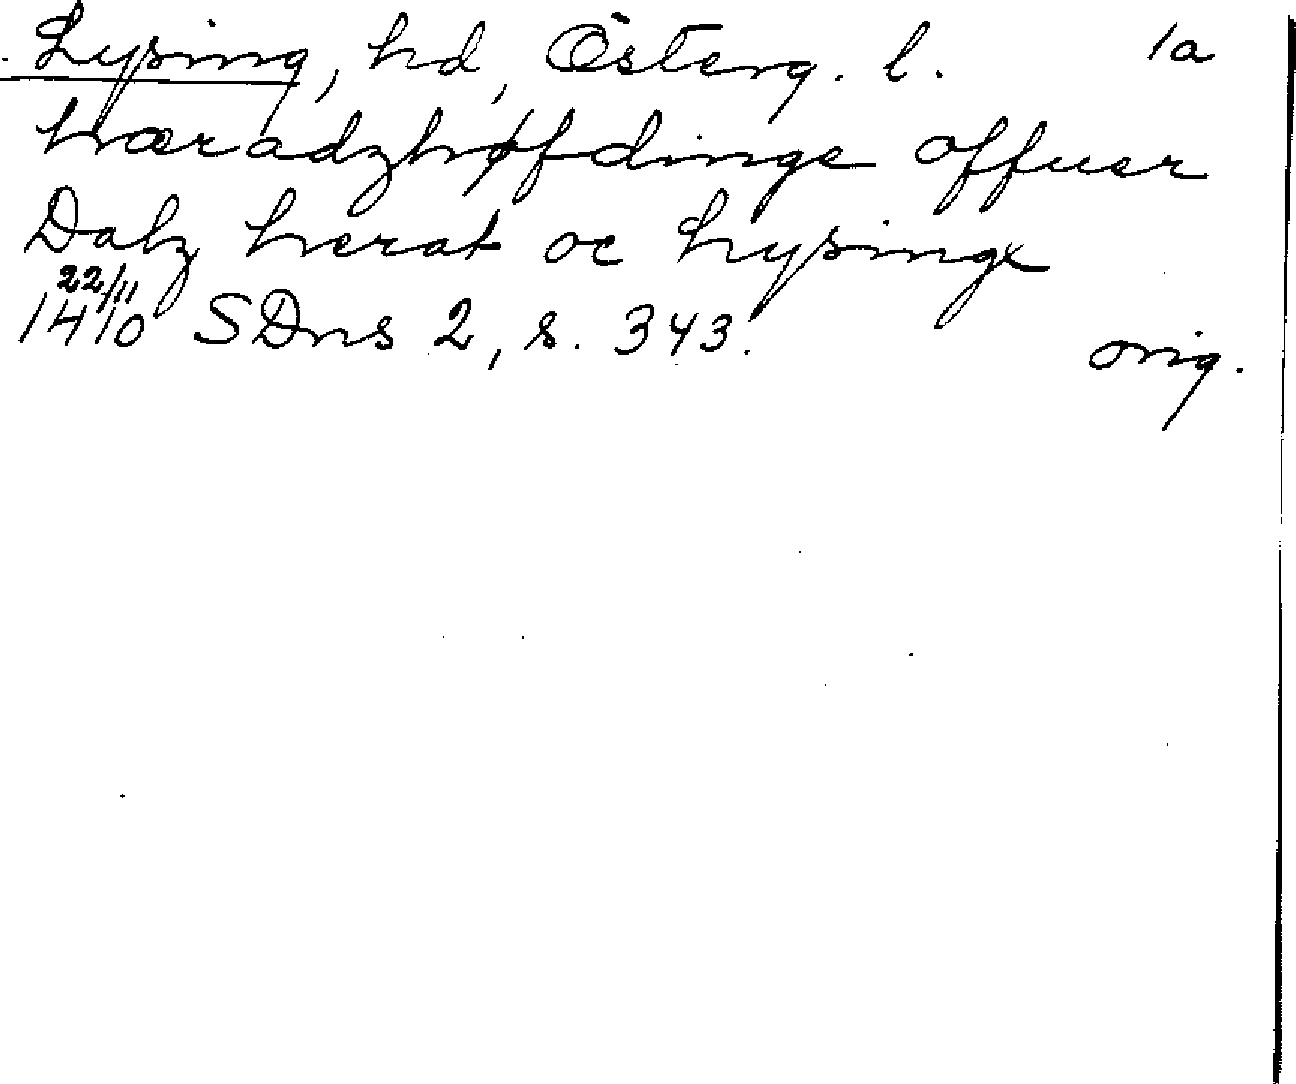 Lysing, hd, Österg. l. 1a
hæradzhøfdinge offuer
Dalz herat oc Lysinge
22/11
1410 SDns 2, s. 343. orig.